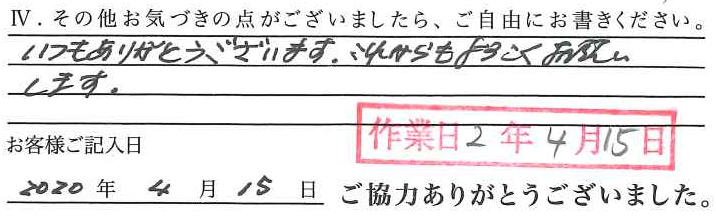 Ⅳ. その他お気づきの点がございましたら、ご自由にお書きください。
いつもありがとうございます. これからもよろしくお願い
します。
作業日2年4月15日
お客様ご記入日
2020年4月15日 ご協力ありがとうございました。